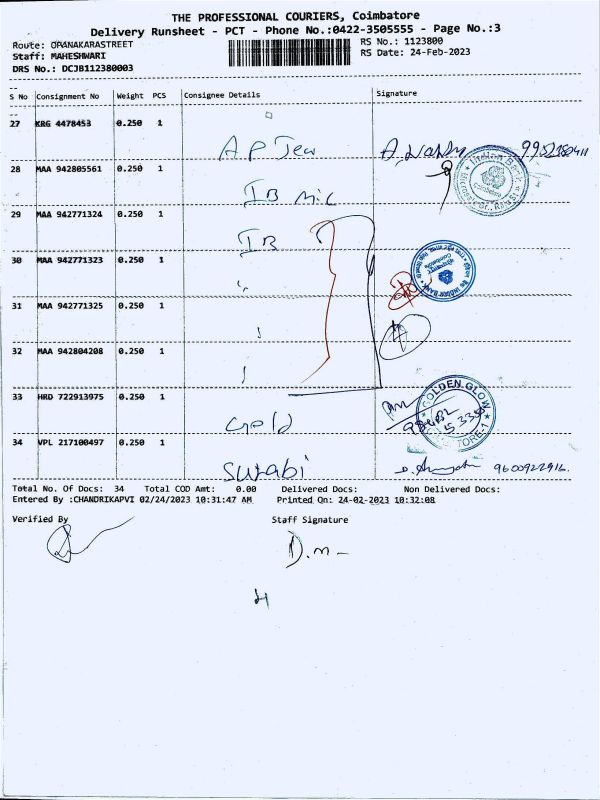 THE PROFESSIONAL COURIERS, Coimbatore
Delivery Runsheet - PCT - Phone No.:0422-3505555 - Page No.:3
Route: OPANAKARASTREET
RS No.: 1123800
Staff: MAHESHWARI
RS Date: 24-Feb-2023
DRS No.: DCJB112380003
S No Consignment No Weight PCS Consignee Details Signature
27 KRG 4478453 0.250 1
AP Jew
28 MAA 942805561 0.250 1
IB mic
29 MAA 942771324 0.250 1
IB
30 MAA 942771323 0.250 1
31 MAA 942771325 0.250 1
32 MAA 942804208 0.250 1
33 HRD 722913975 0.250 1
Gold
GOLDEN GLOW
34 VPL 217100497 0.250 1
Surabi 9600922916
Total No. Of Docs: 34 Total COD Amt: 0.00 Delivered Docs: Non Delivered Docs:
Entered By :CHANDRIKAPVI 02/24/2023 10:31:47 AM Printed On: 24-02-2023 10:32:08
Verified By Staff Signature
D.m-